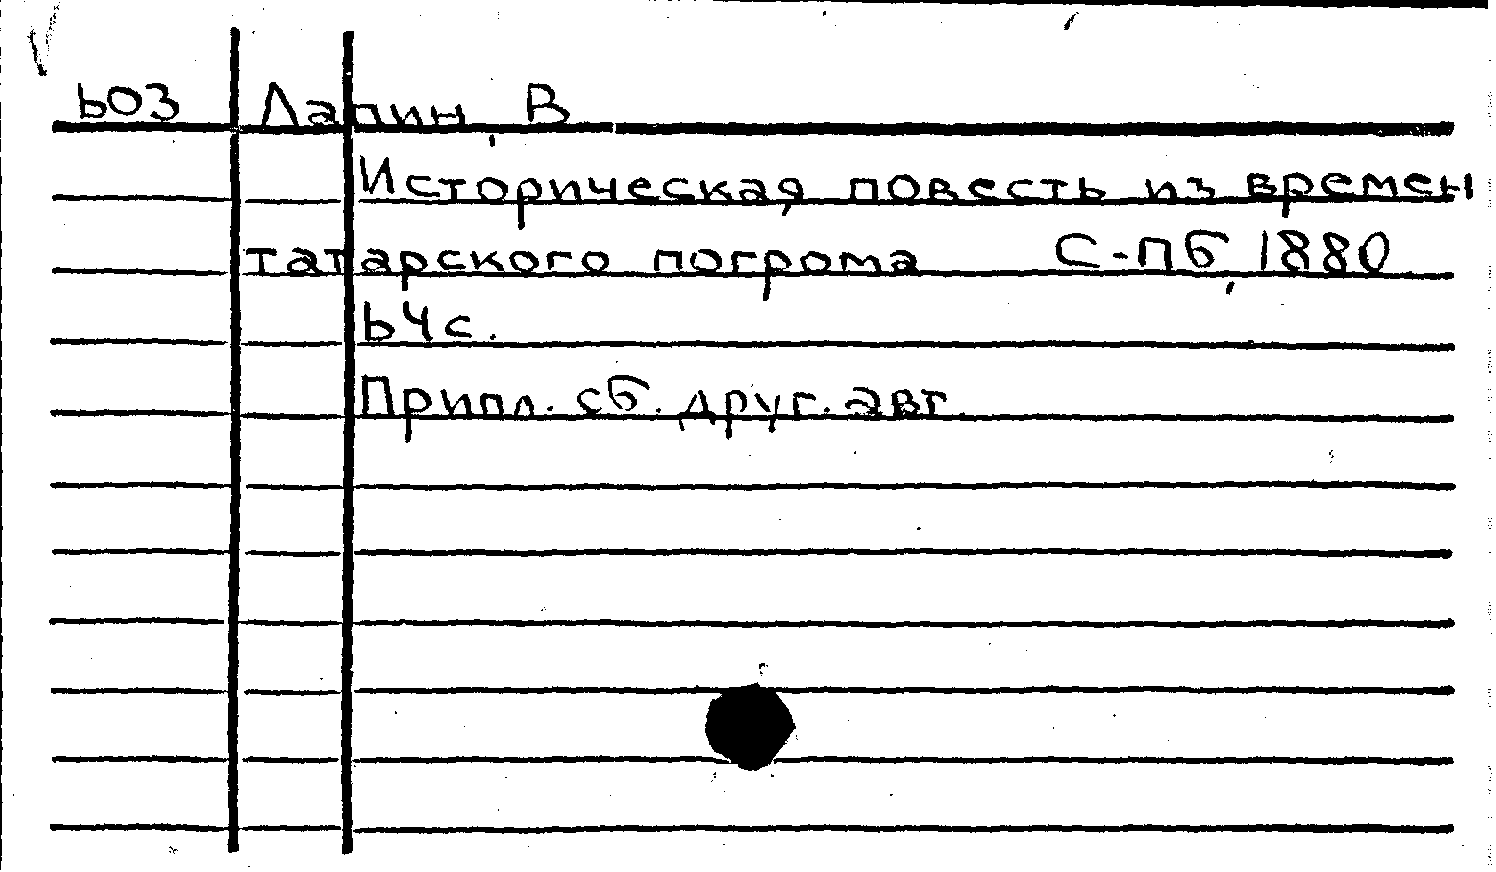 603 Лапин, В.
Историческая повесть из времен
татарского погрома С-Пб, 1880
64 с.
Припл. сб. друг. авт.